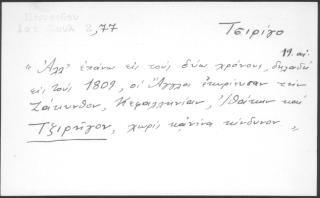 2,77
Τσιρίγο
19. αι.
"Ἀλλ' ἐπάνω εἰς τοὺς δύω χρόνους, δηλαδὴ
εἰς τοὺς 1809, οἱ Ἄγγλοι ἐκυρίευσαν τὴν
Ζάκυνθον, Κεφαλληνίαν, Ἰθάκην καὶ
Τζιρῆγον, χωρὶς κανένα κίνδυνον"